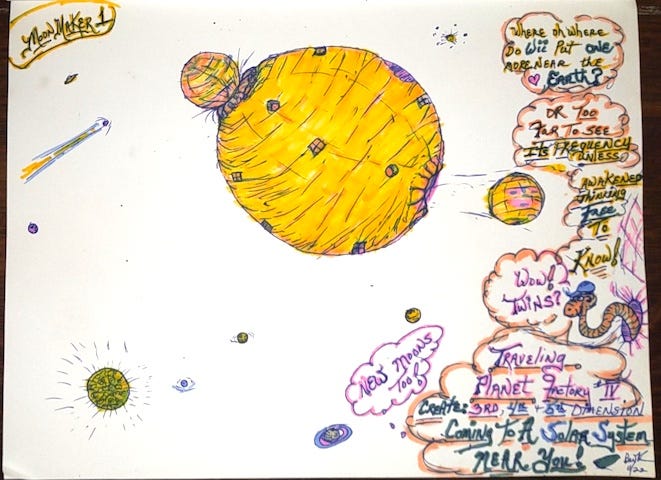 MOONMAKER 1
WHERE OH WHERE
DO Wii PUT ONE
MORE NEAR THE
EARTH?
OR TOO
FAR TO SEE
ITS FREQUENCY
AWAKENED
THINKING
FREE
TO
KNOW!
WOW!
TWINS?
NEW MOONS
TOO!
TRAVELING
PLANET FACTORY #IV
CREATE: 3RD, 4th + 5th DIMENSION
COMING TO A SOLAR SYSTEM
NEAR YOU!